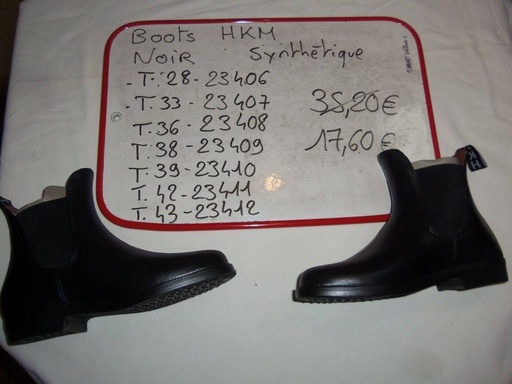 Boots HKM
Noir Synthétique
- T. 28 - 23406
- T. 33 - 23407
T. 36 - 23408
T. 38 - 23409
T. 39 - 23410
T. 42 - 23411
T. 43 - 23412
35,20€
17,60€